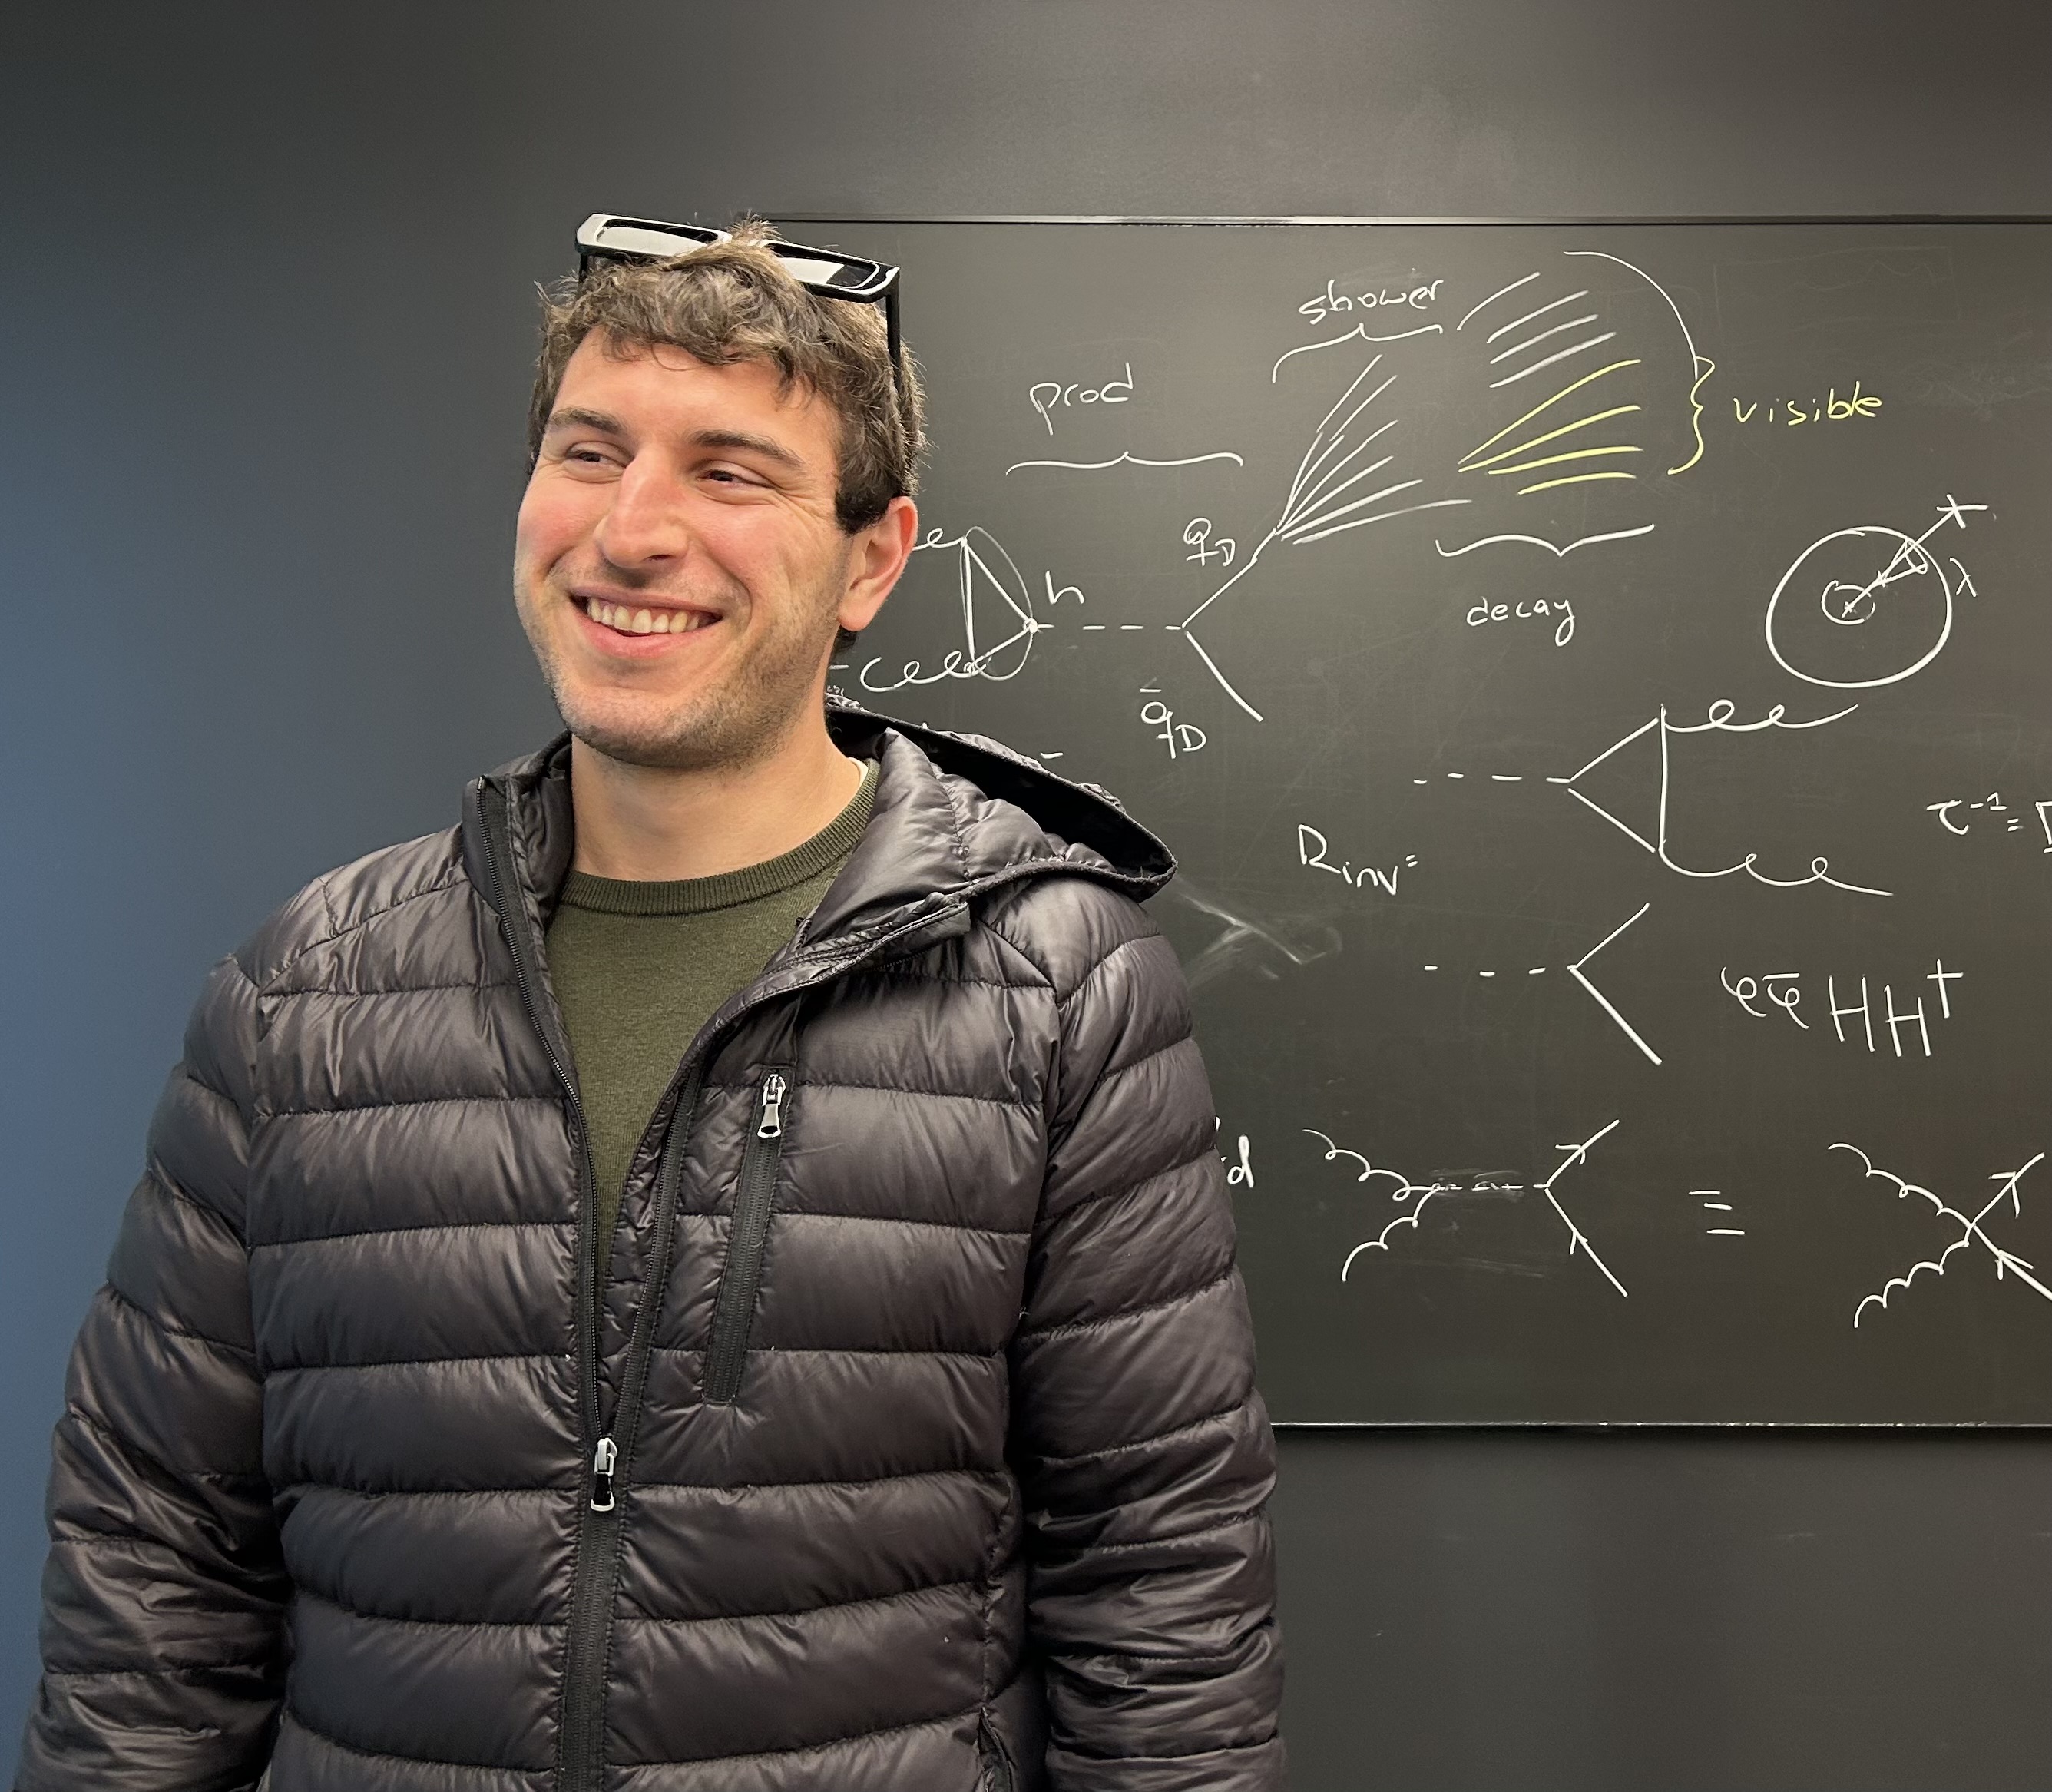 shower
prod
visible
q_D
h
decay
λ
q̄_D
τ⁻¹ =
R_inv =
φφ̄HH†
≡